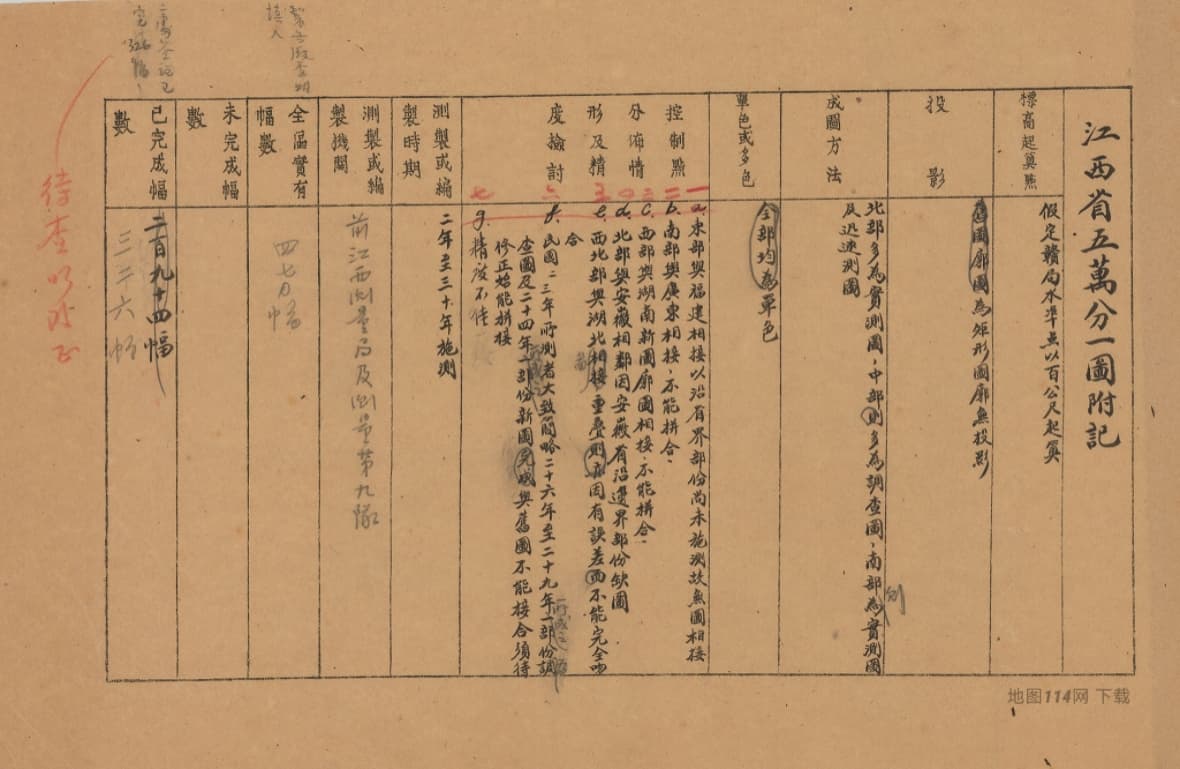 江西省五萬分一圖附記
標高起算點
假定贛局水準点以百公尺起算
投影
舊圖廓圖為矩形圖廓無投影
成圖方法
北部多為實測圖,中部則多為調查圖,南部為實測圖
及迅速測圖
則
單色或多色
全部均為單色
控制點
分佈情
形及精
度檢討
一 a. 東部與福建相接以沿省界部份尚未施測故無圖相接
二 b. 南部與廣東相接,不能拼合.
三 c. 西部與湖南新圖廓圖相接,不能拼合.
四 d. 北部與安徽相鄰因安徽有沿邊界部份缺圖
五 e. 西北部與湖北相接,重疊則亦因有誤差而不能完全吻
合
六 f. 民國二三年所測者大致簡略二十六年至二十九年一部份調
查圖及二十四年一部份新圖完成與舊圖不能接合須待
修正始能拼接
七 g. 精度不佳
測製或編
製時期
二年至三十年施測
測製或編
製機關
前江西測量局及測量第九隊
全區實有
幅數
四七〇幅
未完成幅
數
已完成幅
數
二百九十四幅
三二六幅
待查以改正
地图114网 下载